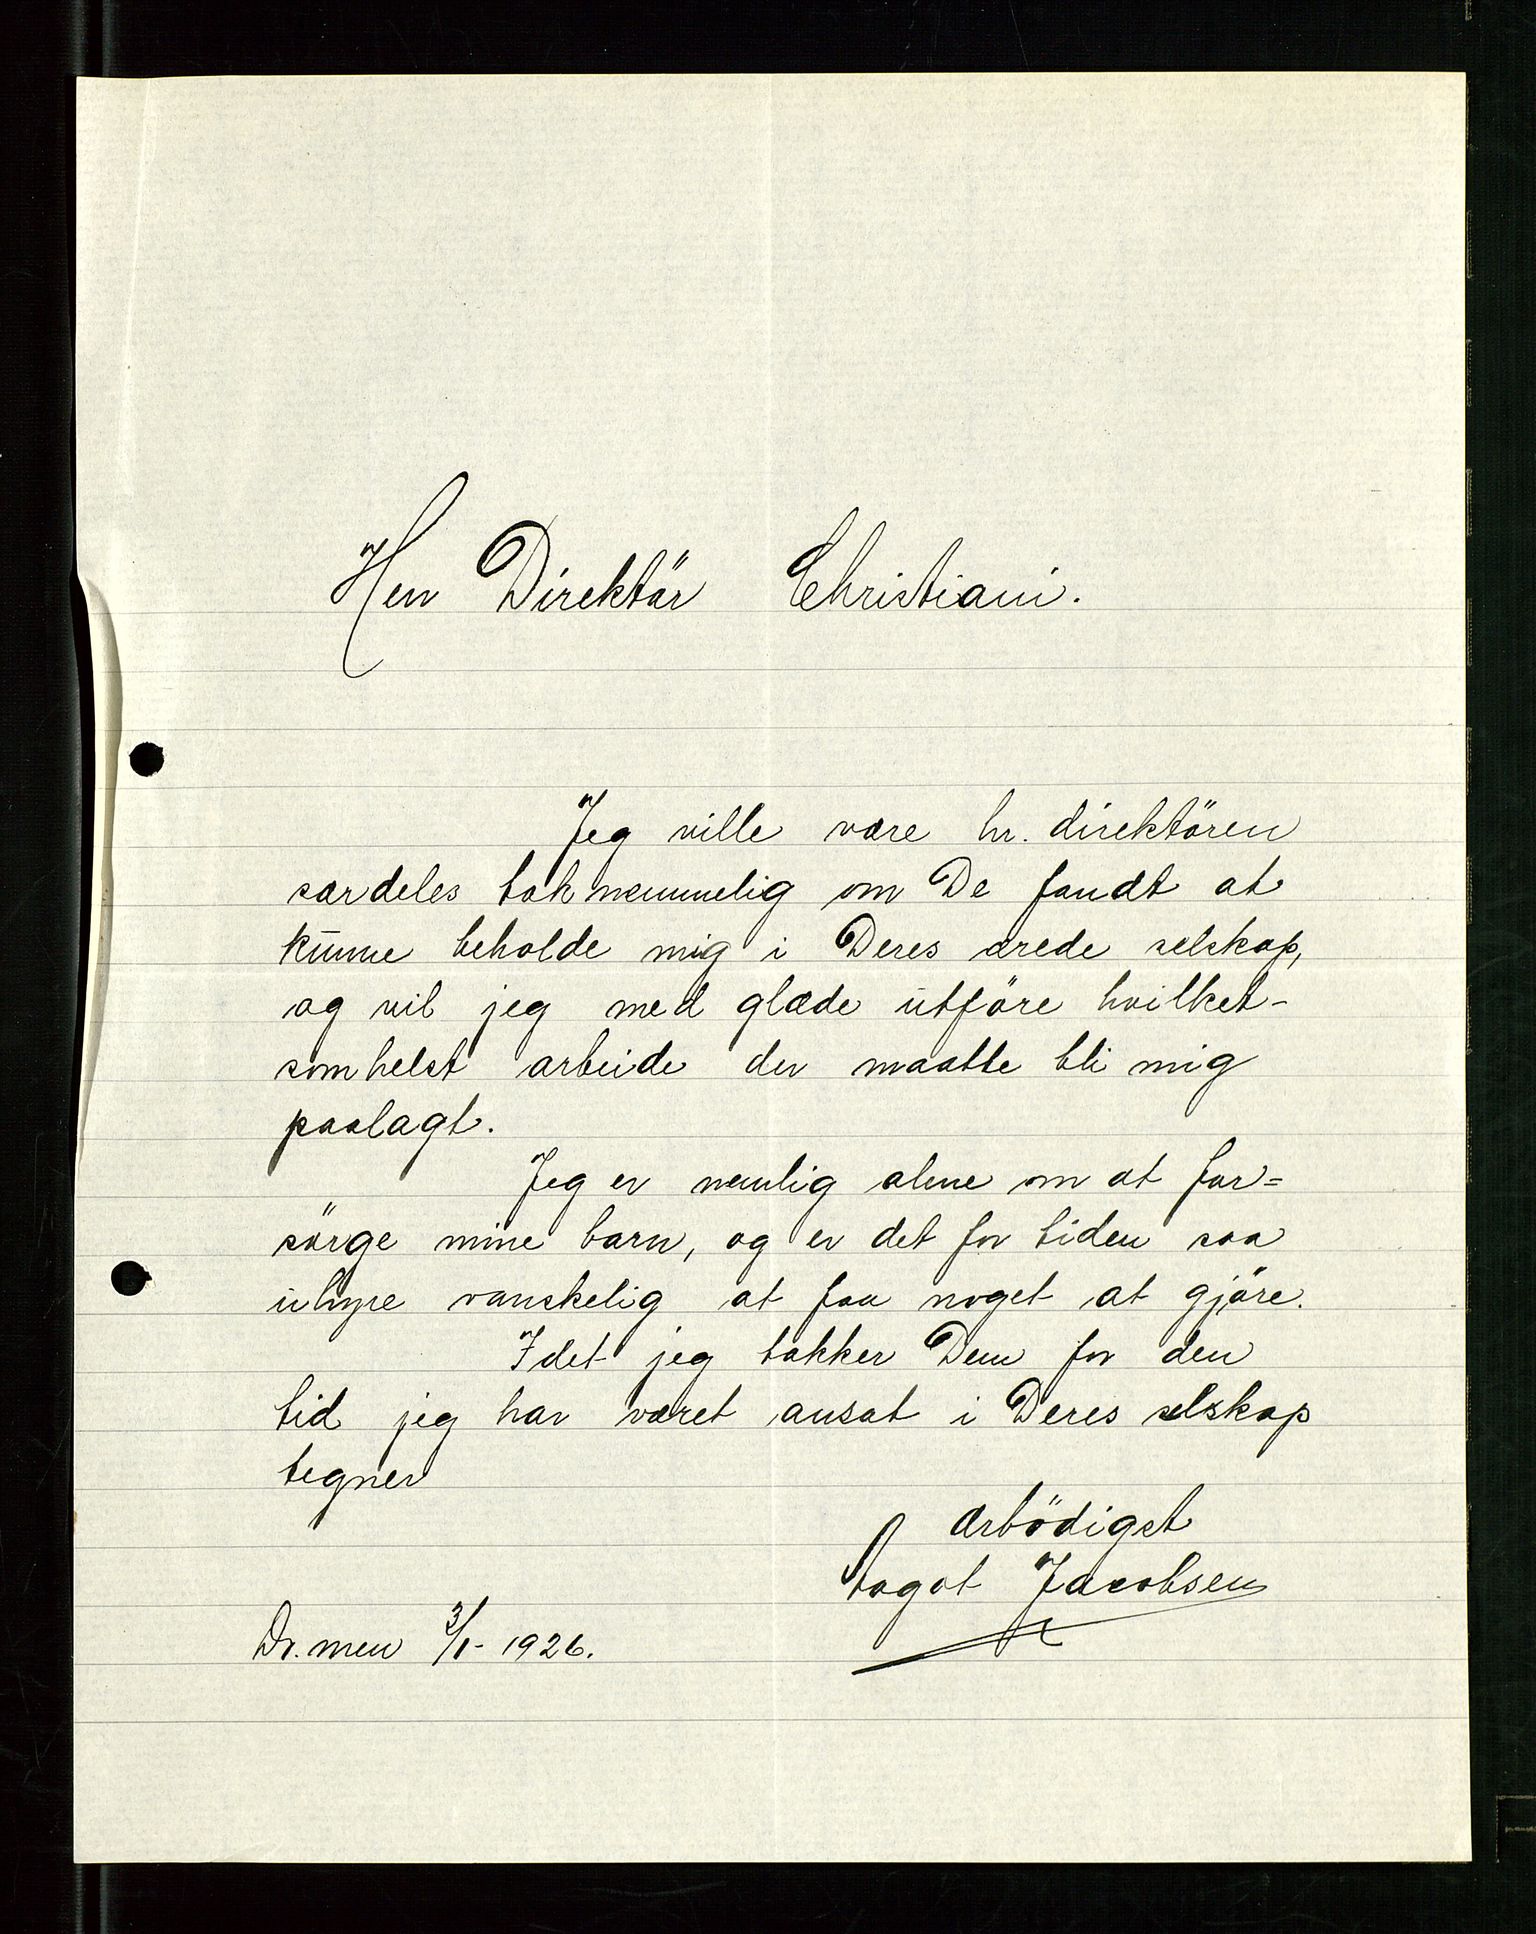 Herr Direktör Christiani.
Jeg ville være hr. direktören
særdeles taknemmelig om De fandt at
kunne beholde mig i Deres ærede selskap,
og vil jeg med glæde utföre hvilket-
somhelst arbeide der maatte bli mig
paalagt.
Jeg er nemlig alene om at for=
sörge mine barn, og er det for tiden saa
uhyre vanskelig at faa noget at gjöre.
Idet jeg takker Dem for den
tid jeg har været ansat i Deres selskap
tegner
ærbödigst
Aagot Jacobsen
Dr.men 3/1- 1926.